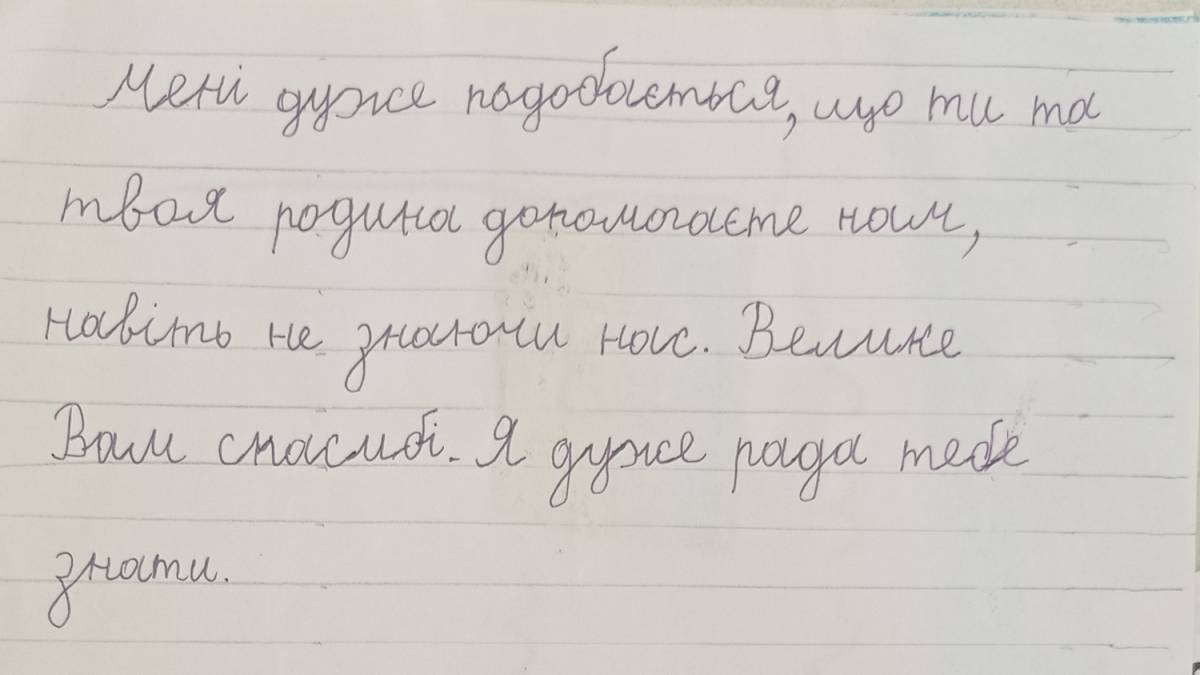 Мені дуже подобається, що ти та
твоя родина допомагаєте нам,
навіть не знаючи нас. Велике
Вам спасибі. Я дуже рада тебе
знати.